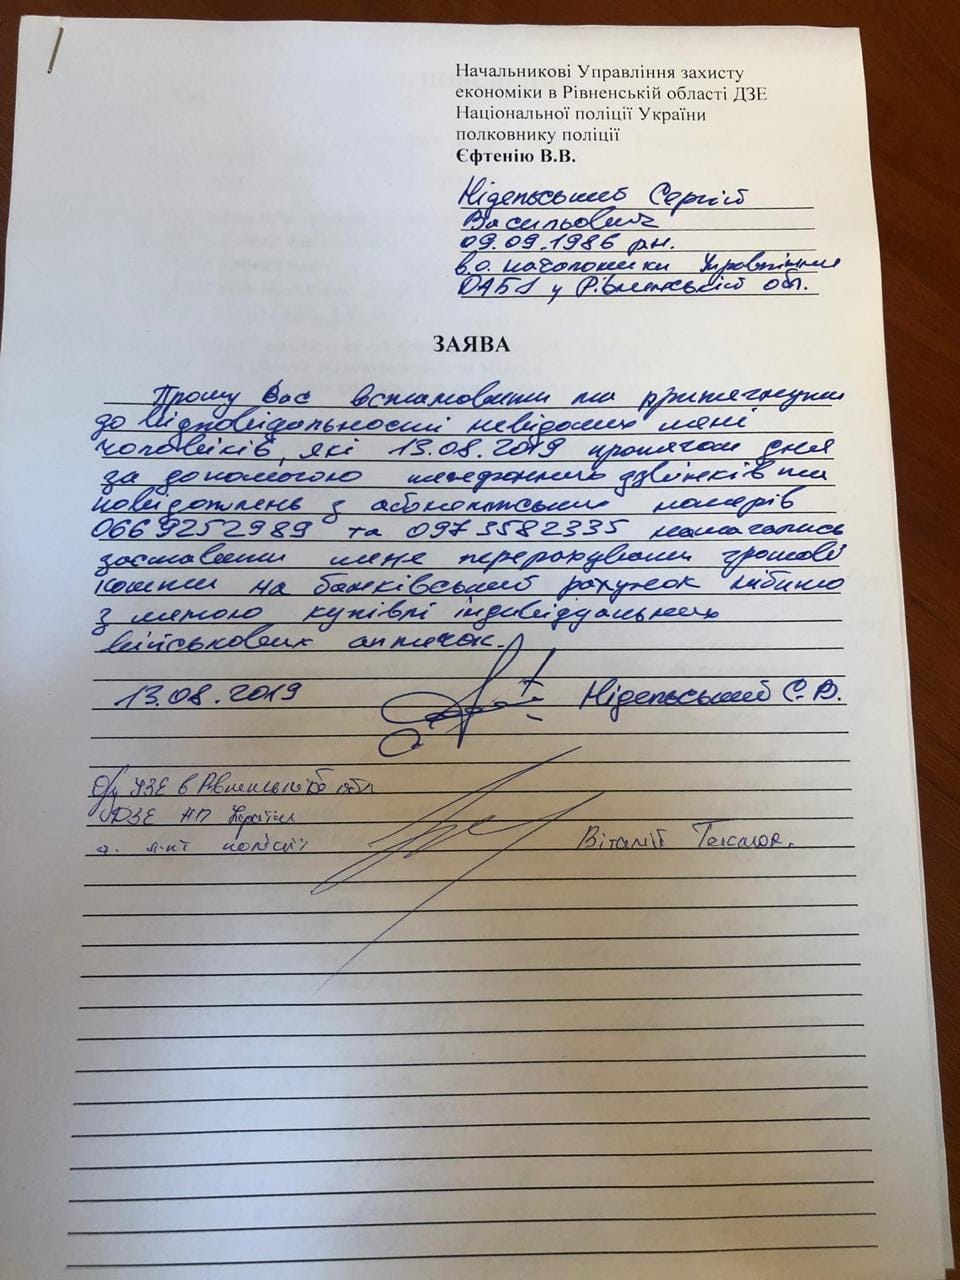 Начальникові Управління захисту
економіки в Рівненській області ДЗЕ
Національної поліції України
полковнику поліції
Єфтенію В.В.
Нідельський Сергій
Васильович
09.09.1986 р.н.
в.о. начальника Управління
ДАБІ у Рівненській обл.
ЗАЯВА
Прошу Вас встановити та притягнути
до відповідальності невідомих мені
чоловіків, які 13.08.2019 протягом дня
за допомогою телефонних дзвінків та
повідомлень з абонентських номерів
0669252989 та 0973582335 намагались
заставити мене перерахувати грошові
кошти на банківський рахунок нібито
з метою купівлі індивідуальних
військових аптечок.
13.08.2019 Нідельський С.В.
О/у УЗЕ в Рівненській обл
ДЗЕ НП України
л-нт поліції Віталій